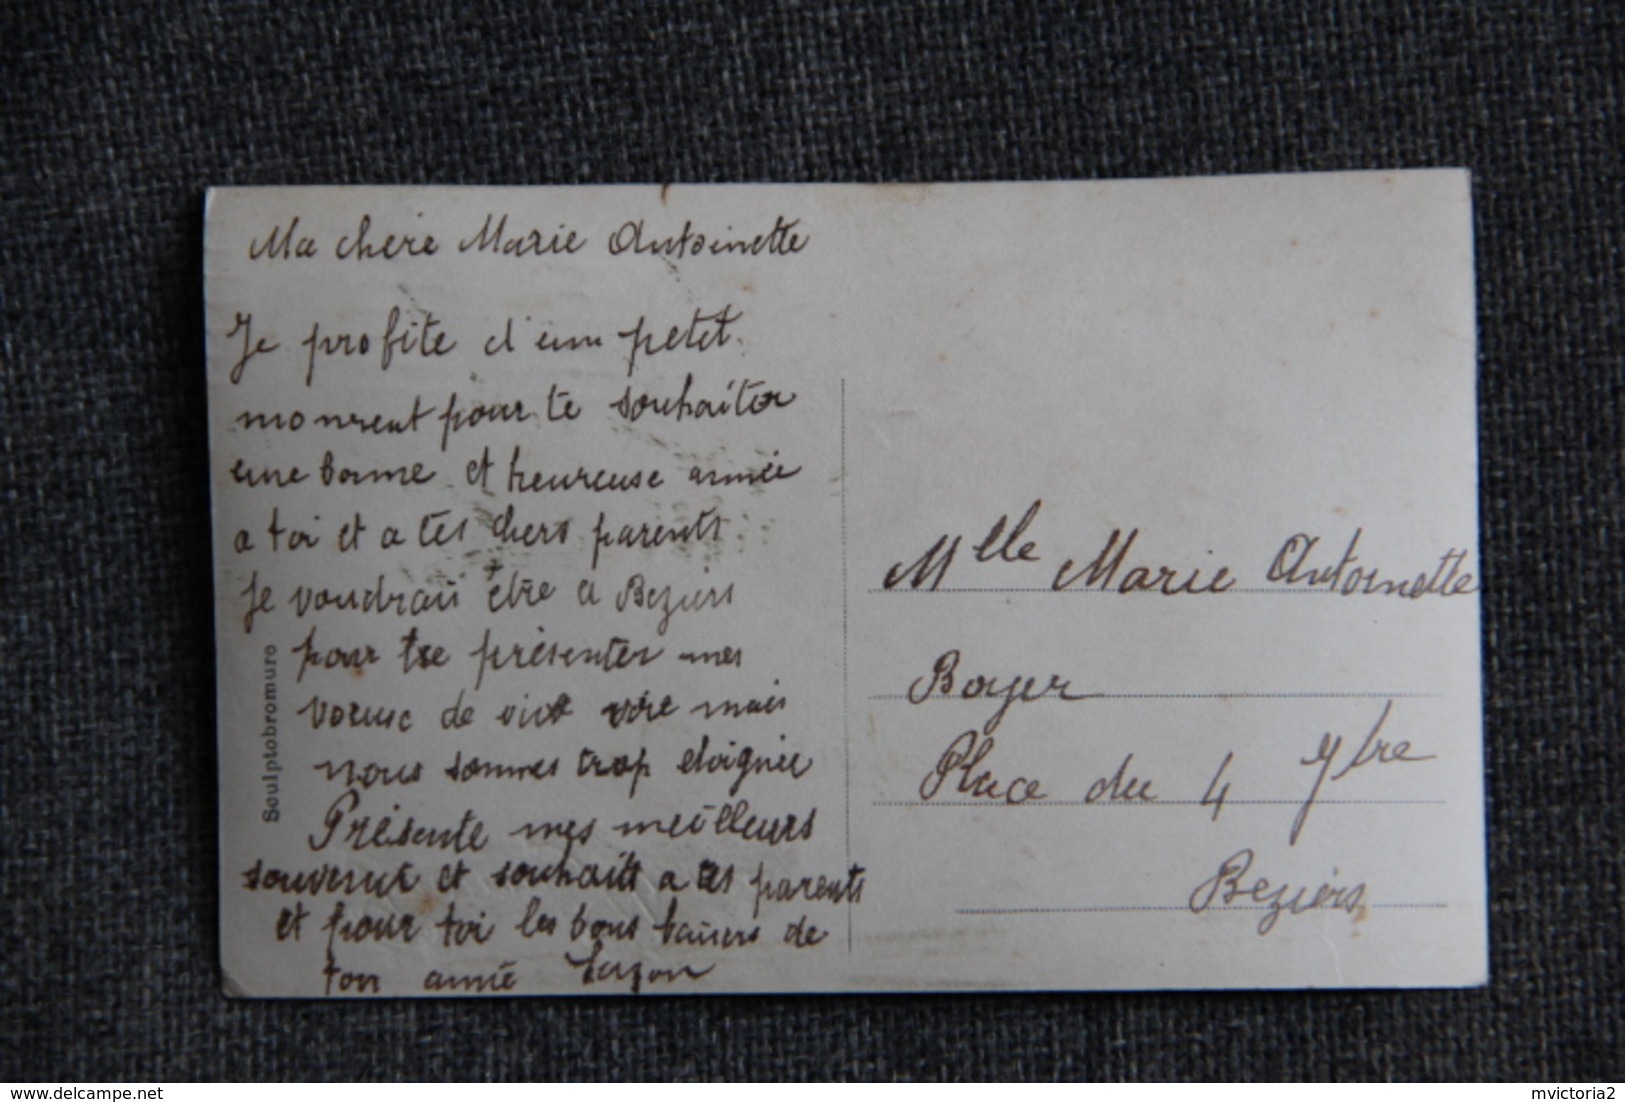 Ma chere Marie Antoinette
Je profite d'un petit
moment pour te souhaiter
une bonne et heureuse année
a toi et a tes chers parents
Je voudrais être a Beziers
pour te présenter mes
voeux de vive voie mais
nous sommes trop eloignée
Présente mes meilleurs
souvenir et souhaits a tes parents
et pour toi les bons baisers de
ton amie
Soulptobromuro
Mlle Marie Antoinette
Boyer
Place du 4 7bre
Beziers
delcampe.net
mvictoria2